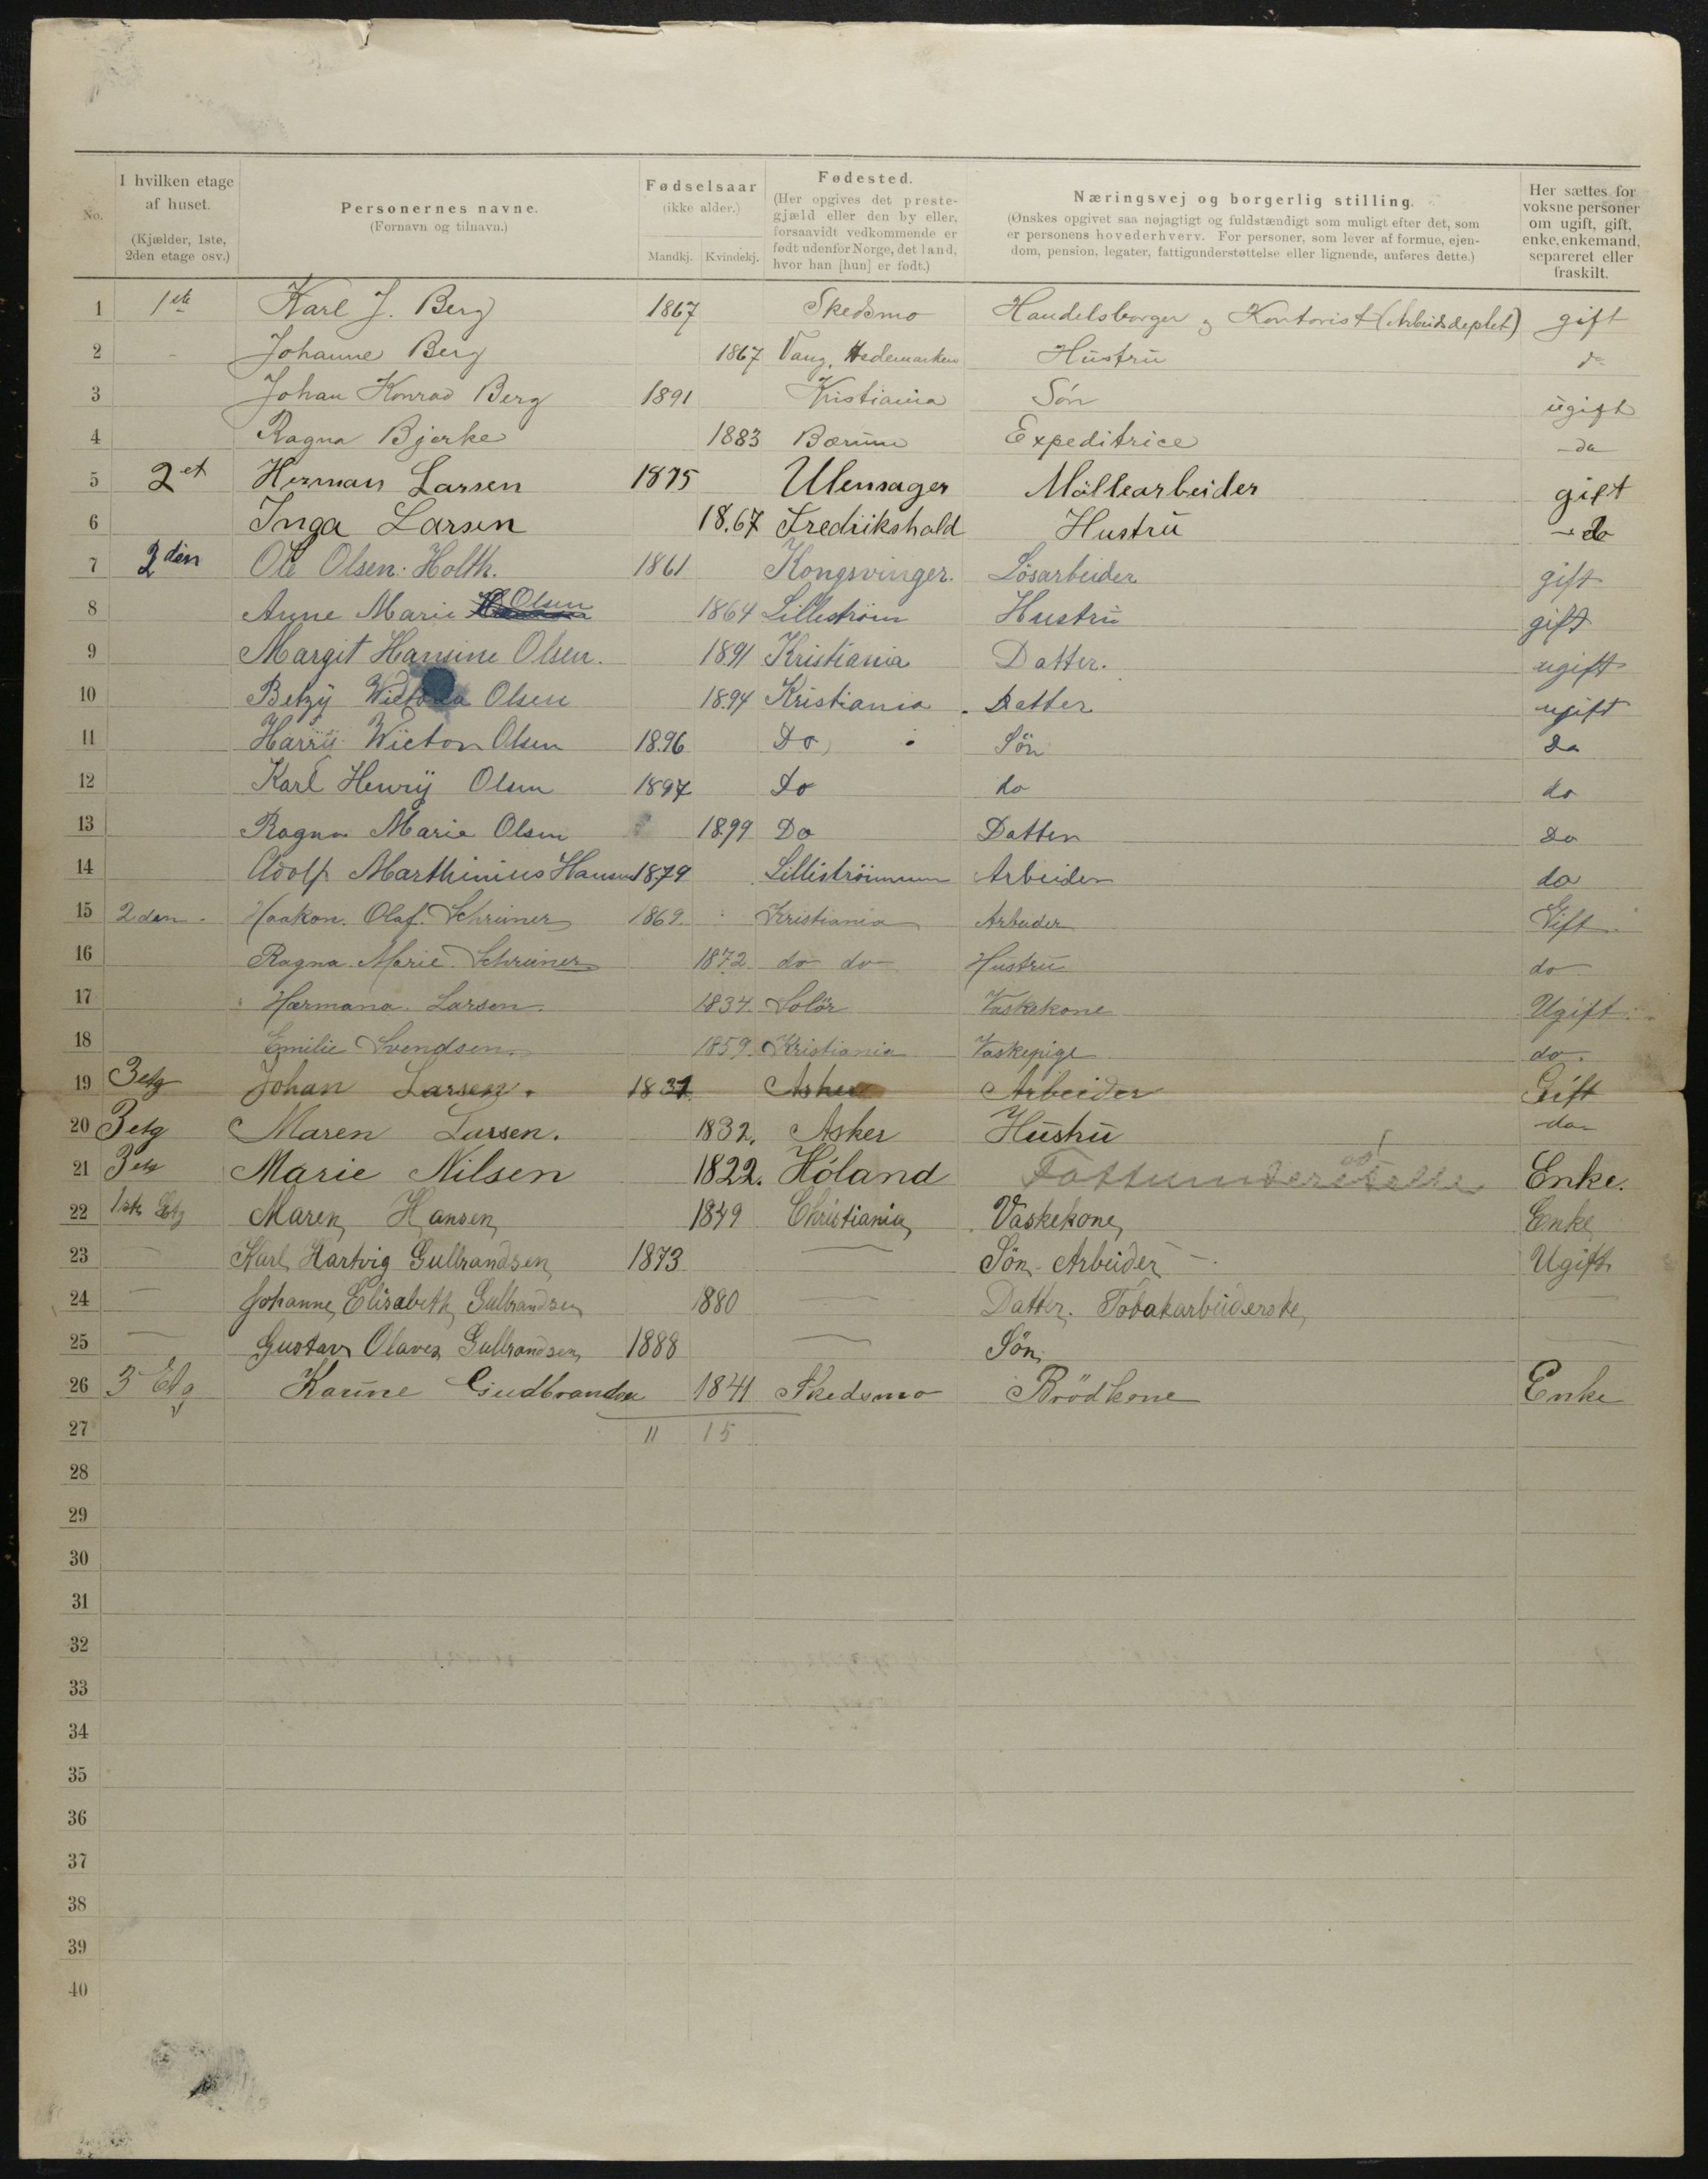 No.
I hvilken etage af huset.
(Kjælder, 1ste, 2den etage osv.)
Personernes navne.
(Fornavn og tilnavn.)
Fødselsaar
(ikke alder.)
Mandkj. Kvindekj.
Fødested.
(Her opgives det prestegjæld eller den by eller, forsaavidt vedkommende er født udenfor Norge, det land, hvor han [hun] er født.)
Næringsvej og borgerlig stilling.
(Ønskes opgivet saa nøjagtigt og fuldstændigt som muligt efter det, som er personens hovederhverv. For personer, som lever af formue, ejendom, pension, legater, fattigunderstøttelse eller lignende, anføres dette.)
Her sættes for voksne personer om ugift, gift, enke, enkemand, separeret eller fraskilt.
1 1ste Karl J. Berg 1867 Skedsmo Handelsborger og Kontorist (Arbeidsdeptet) gift
2 Johanne Berg 1867 Vang, Hedemarken Hustru do
3 Johan Konrad Berg 1891 Kristiania Søn ugift
4 Ragna Bjerke 1883 Bærum Expeditrice do
5 2et Herman Larsen 1875 Ulensager Möllearbeider gift
6 Inga Larsen 18.67 Fredrikshald Hustru do
7 2den Ole Olsen. Holth. 1861 Kongsvinger. Lösarbeider gift
8 Anne Marie Olsen 1864 Lilleström Hustru gift
9 Margit Hansine Olsen. 1891 Kristiania Datter. ugift
10 Betzy Olsen 18.94 Kristiania Datter ugift
11 Harry Wictor Olsen 18.96 Do Sön Do
12 Karl Henry Olsen 1897 Do do do
13 Ragna Marie Olsen 18.99 Do Datter Do
14 Adolf Marthinius Hansen 1879 Lilliströmmen Arbeider do
15 2den. Haakon. Olaf. Schreiner 1869. Kristiania Arbeider Gift.
16 Ragna. Marie. Schreiner 1872 do do Hustru do
17 Hermana. Larsen. 1834. Solör Vaskekone Ugift.
18 Emilie Svendsen. 1859. Kristiania Vaskepige do.
19 3etg Johan Larsen. 1831 Asker Arbeider Gift
20 3etg Maren Larsen. 1832. Asker Hustru do
21 3etg Marie Nilsen 1822. Höland Enke.
22 1ste Etg Maren Hansen 1849 Christiania Vaskekone Enke
23 — Karl Hartvig Gulbrandsen 1873 — Sön - Arbeider - Ugift
24 — Johanne Elisabeth Gulbrandsen 1880 — Datter. Tobakarbeiderske —
25 — Gustav Olaves Gulbrandsen 1888 — Sön —
26 3 Etg Karine Gudbrandsen 1841 Skedsmo Brödkone Enke
27 11 15
28
29
30
31
32
33
34
35
36
37
38
39
40